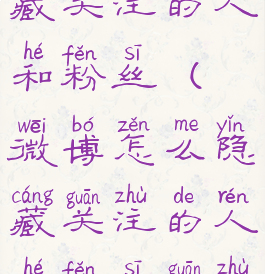 藏关注的人
hé fěn sī
和粉丝（
wēi bó zěn me yǐn
微博怎么隐
cáng guān zhù de rén
藏关注的人
hé fěn sī guān zhù